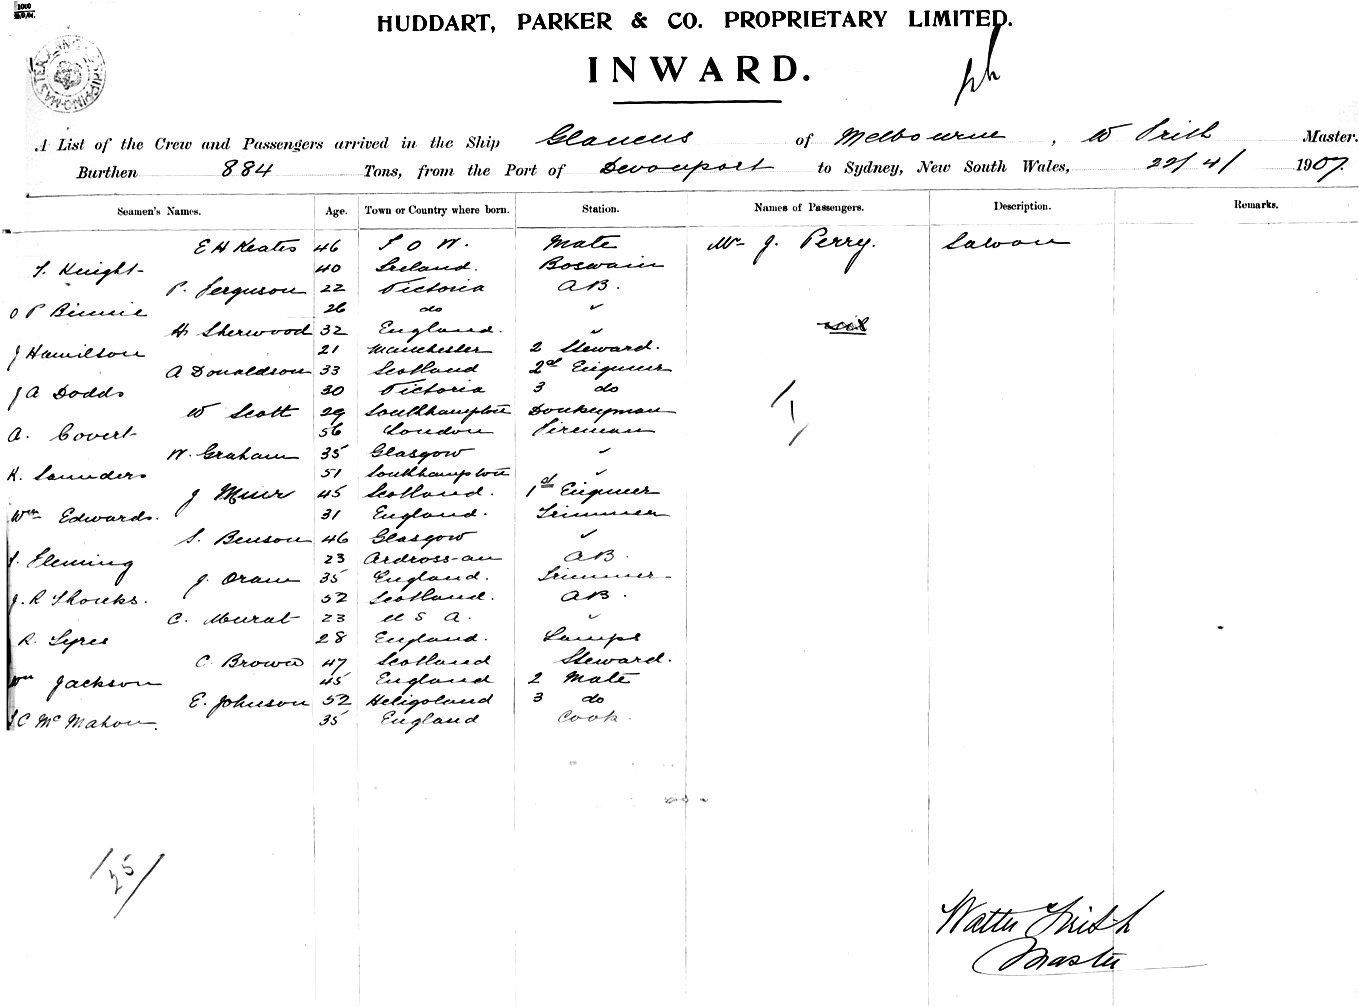 HUDDART, PARKER & CO. PROPRIETARY LIMITED.
INWARD.
A List of the Crew and Passengers arrived in the Ship Glaucus of Melbourne, W Frith Master.
Burthen 884 Tons, from the Port of Devonport to Sydney, New South Wales, 22/4/ 1907.
Seamen's Names. Age. Town or Country where born. Station. Names of Passengers. Description. Remarks.
E H Keates 46 I O W. Mate Mr J. Perry. Saloon
T. Knight 40 Ireland. Boswain
P. Ferguson 22 Victoria AB.
O P Binnie 26 do "
H Sherwood 32 England. " nil
J Hamilson 21 Manchester 2 Steward.
A Donaldson 33 Scotland 2nd Engineer
J A Dodds 30 Victoria 3 do
W Scott 29 Southampton Donkeyman
A. Covert 56 London Fireman
W. Graham 35 Glasgow "
K. Saunders 51 Southampton "
J Muir 45 Scotland. 1st Engineer
Wm Edwards. 31 England. Trimmer
S. Benson 46 Glasgow "
T. Fleming 23 Ardross-an AB.
J. Oram 35 England. Trimmer
J. R Shonks. 52 Scotland. AB.
C. Murat 23 U S A. "
R. Syree 28 England. Lamps
C. Brown 47 Scotland Steward.
Wm Jackson 45 England 2 Mate
E. Johnson 52 Heligoland 3 do
C McMahon. 35 England Cook.
/25/
Walter Frith
Master